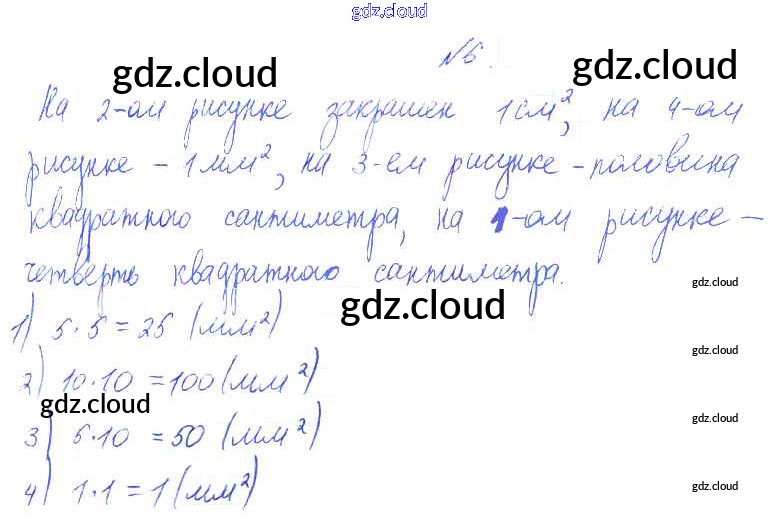 gdz.cloud
№6.
gdz.cloud gdz.cloud
На 2-ом рисунке закрашен 1 см², на 4-ом
рисунке – 1 мм², на 3-ем рисунке – половина
квадратного сантиметра, на 1-ом рисунке –
четверть квадратного сантиметра.
gdz.cloud
gdz.cloud
1) 5·5 = 25 (мм²)
gdz.cloud
2) 10·10 = 100 (мм²)
gdz.cloud
gdz.cloud
3) 5·10 = 50 (мм²)
4) 1·1 = 1 (мм²)
gdz.cloud